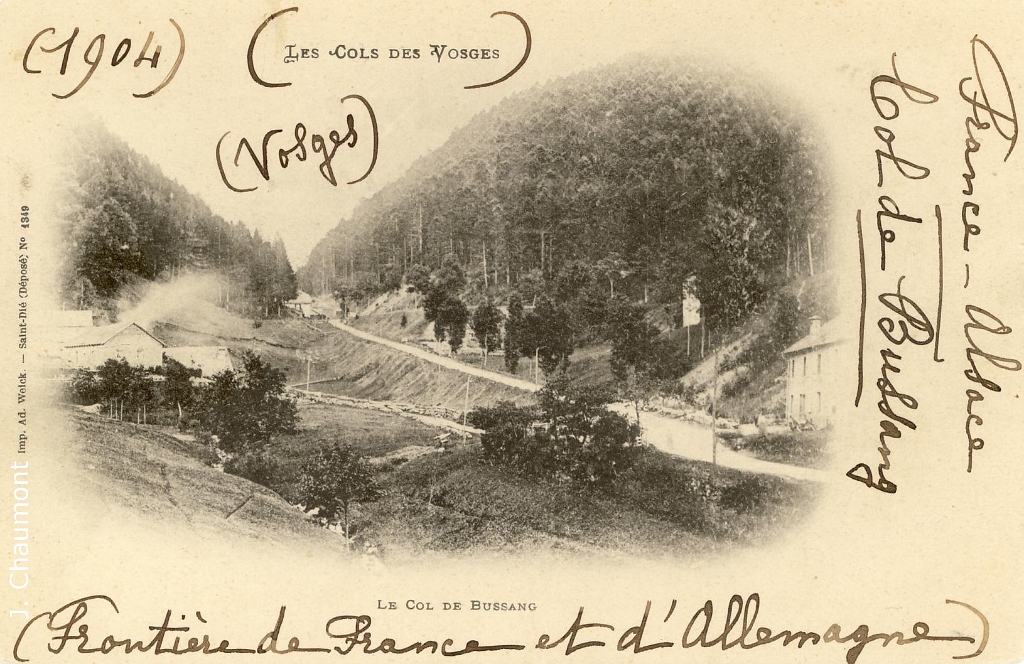 (1904)
(Les Cols des Vosges)
(Vosges)
France - Alsace
Col de Bussang
Imp. Ad. Weick. — Saint-Dié (Déposé) No 1349
J. Chaumont
Le Col de Bussang
(Frontière de France et d'Allemagne)